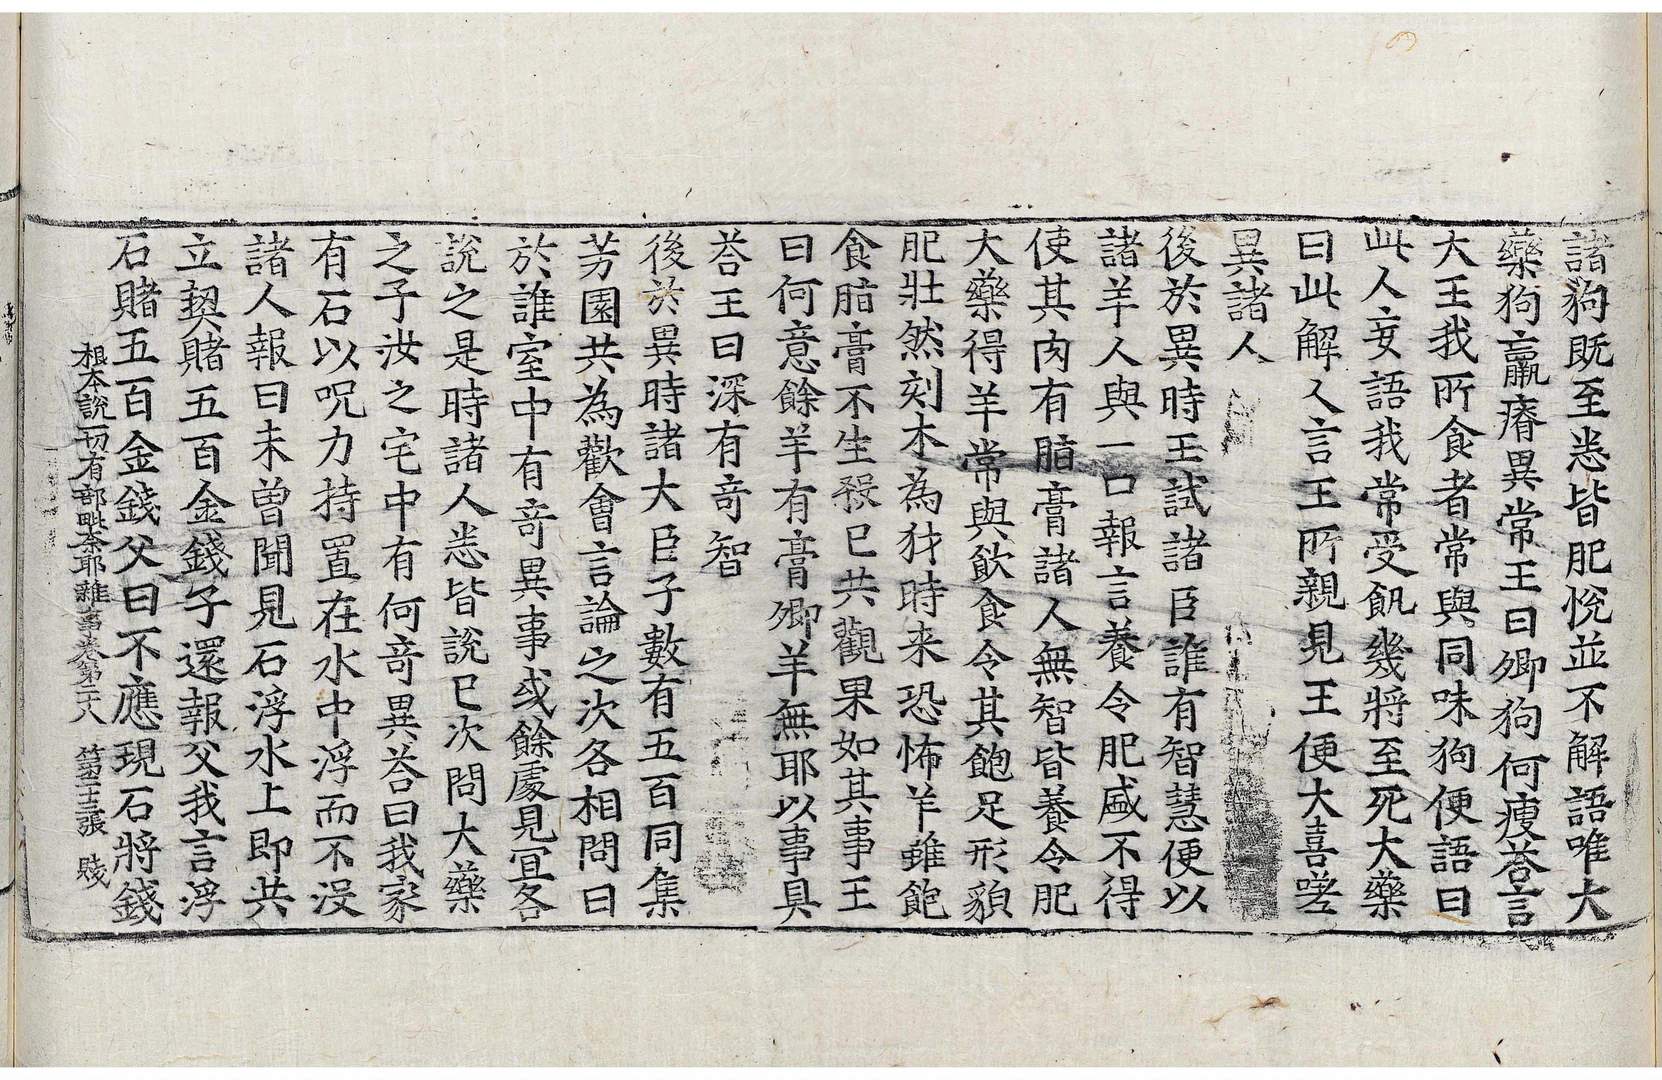 諸狗既至悉皆肥悅並不解語唯大
藥狗羸瘠異常王曰卿狗何瘦荅言
大王我所食者常與同味狗便語曰
此人妄語我常受飢幾將至死大藥
曰此解人言王所親見王便大喜嗟
異諸人
後於異時王試諸臣誰有智慧便以
諸羊人與一口報言養令肥盛不得
使其肉有脂膏諸人無智皆養令肥
大藥得羊常與飲食令其飽足形貌
肥壯然刻木為犲時来恐怖羊雖飽
食脂膏不生殺已共觀果如其事王
曰何意餘羊有膏卿羊無耶以事具
荅王曰深有奇智
後於異時諸大臣子數有五百同集
芳園共為歡會言論之次各相問曰
於誰室中有奇異事或餘處見宜各
說之是時諸人悉皆說已次問大藥
之子汝之宅中有何奇異荅曰我家
有石以呪力持置在水中浮而不沒
諸人報曰未曾聞見石浮水上即共
立契賭五百金錢子還報父我言浮
石賭五百金錢父曰不應現石將錢
根本說一切有部毗奈耶雜事卷第二十八 第二十三張 賤